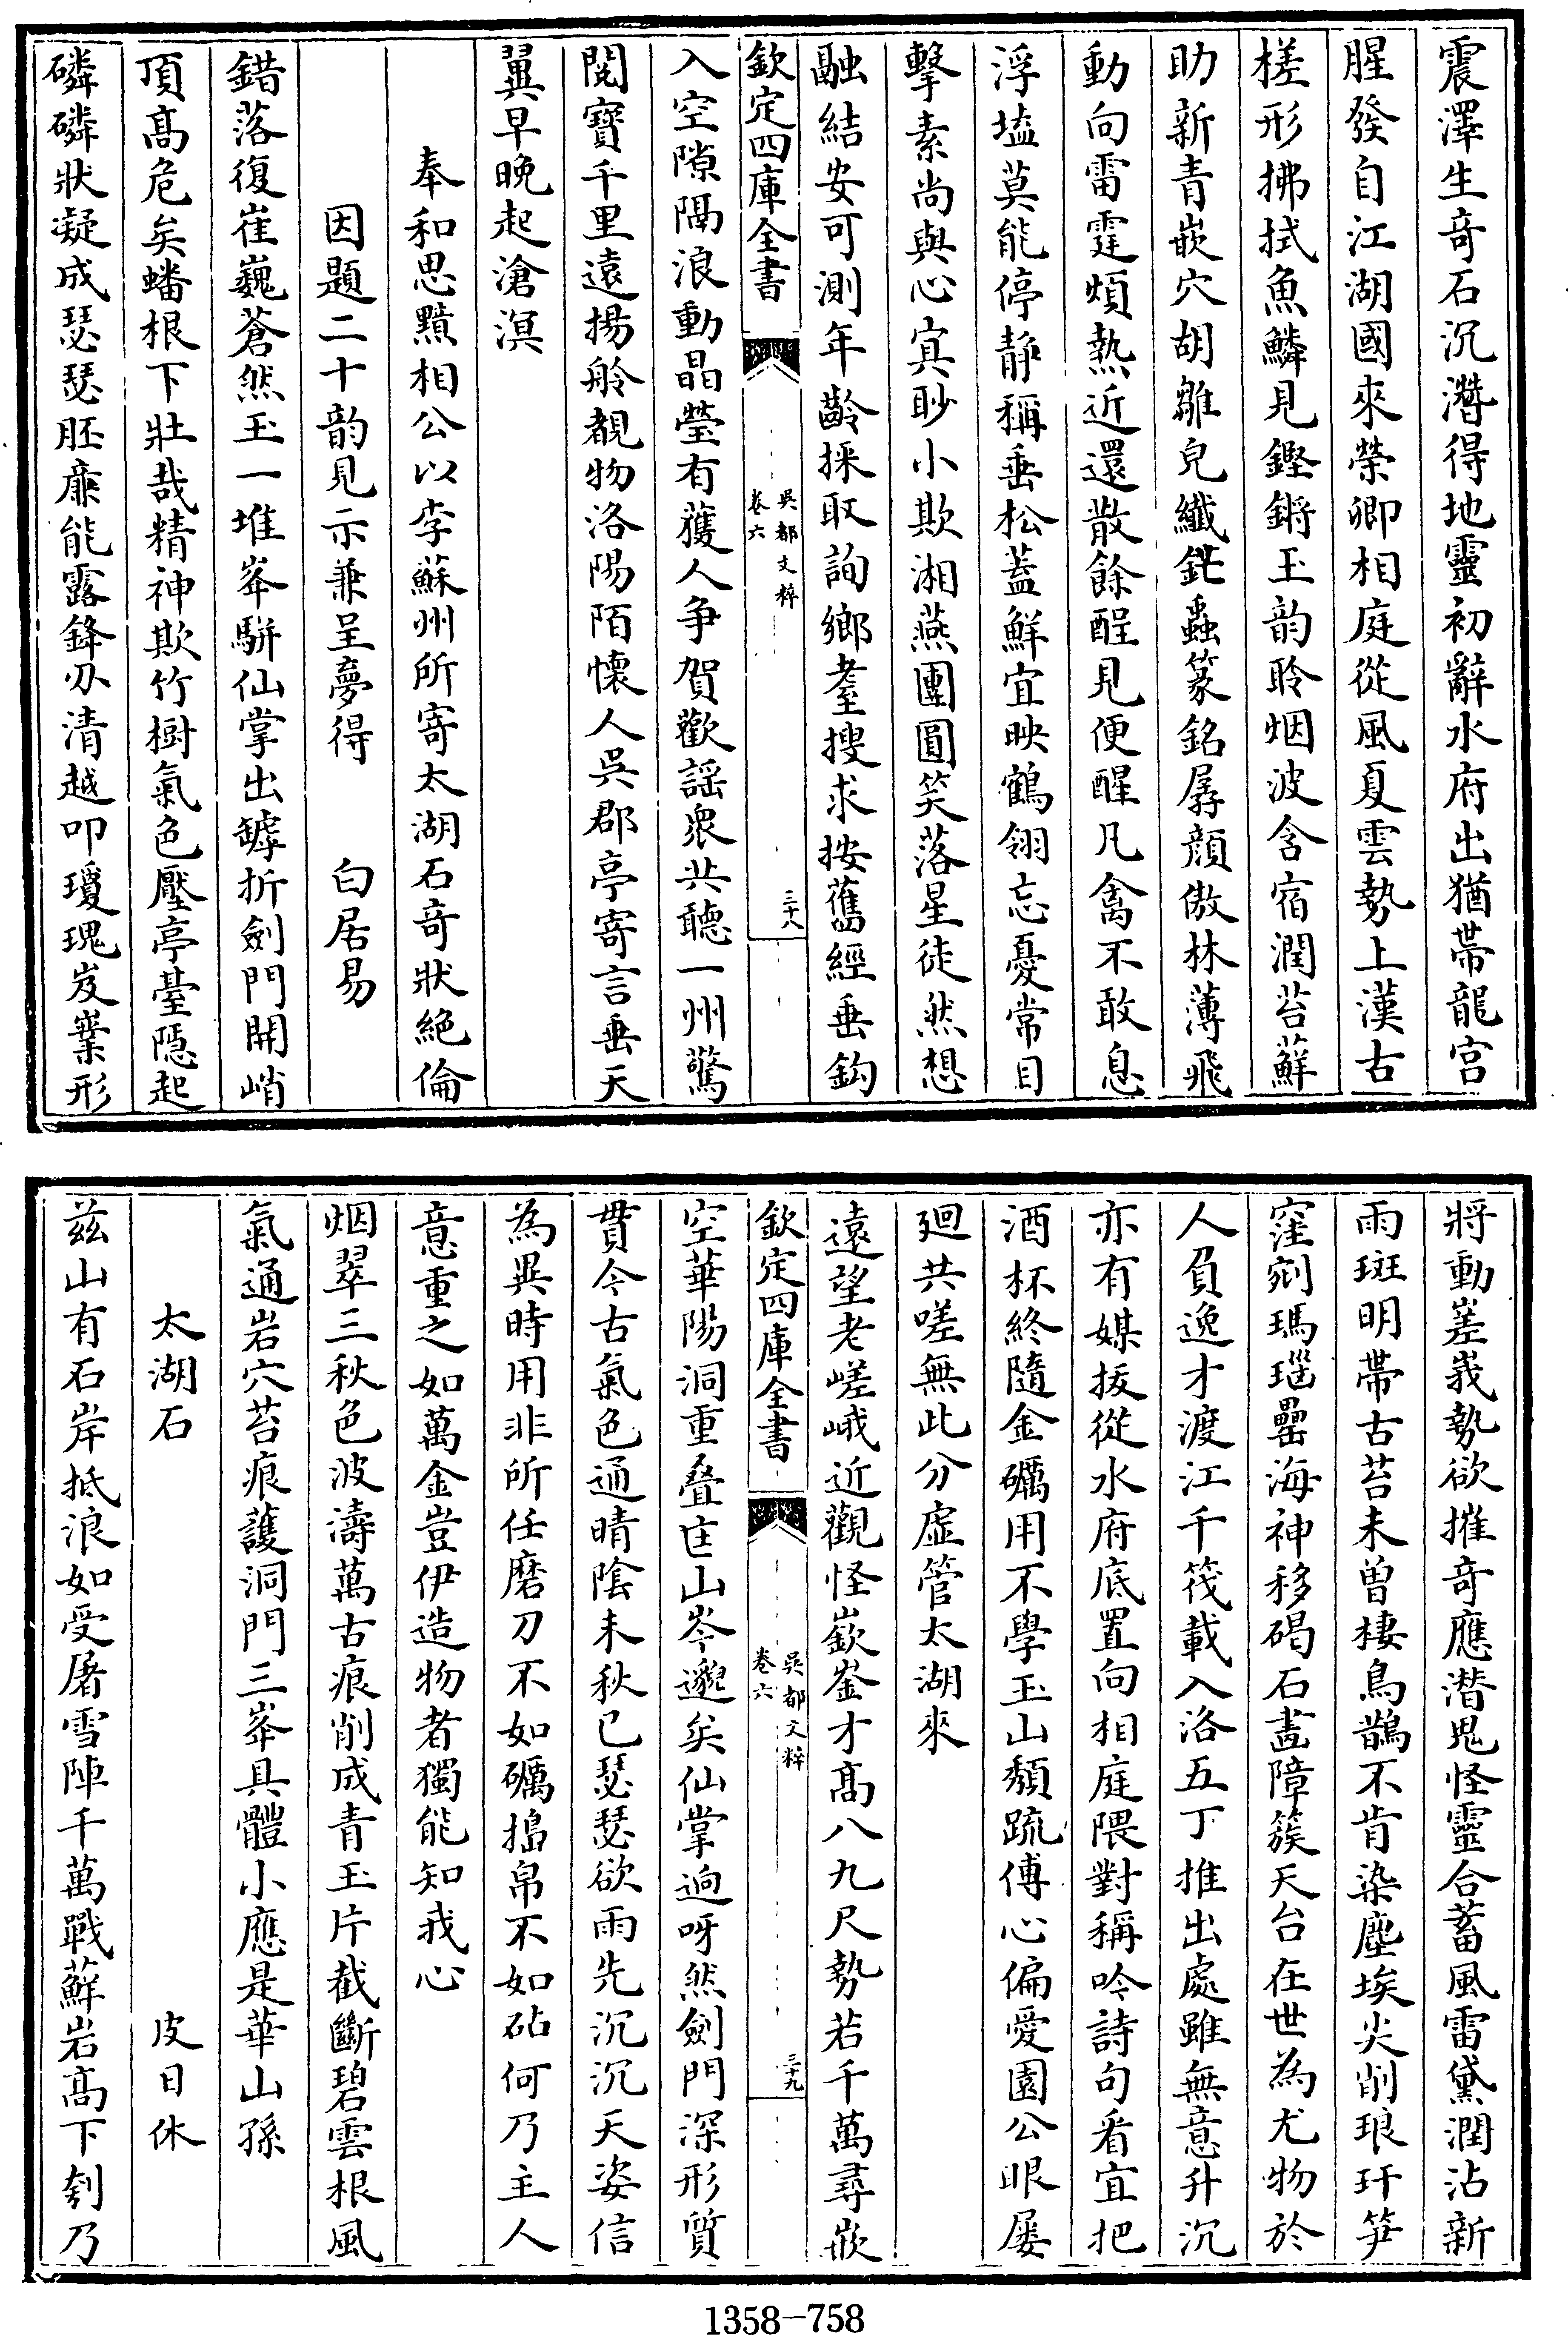 震澤生奇石沉潛得地靈初辭水府出猶帶龍宮
腥發自江湖國來榮卿相庭從風夏雲勢上漢古
槎形拂拭魚鱗見鏗鏘玉韵聆烟波含宿潤苔蘚
助新青嵌穴胡雛皃纖鋩蟲篆銘孱顏傲林薄飛
動向雷霆煩熱近還散餘酲見便醒凡禽不敢息
浮壒莫能停靜稱垂松蓋鮮宜映鶴翎忘憂常目
擊素尚與心㝠眇小欺湘燕團圓笑落星徒然想
融結安可測年齡採取詢鄉耋搜求按舊經垂鈎
欽定四庫全書
吳都文粹
卷六
三十八
入空隙隔浪動晶瑩有獲人争賀歡謡衆共聽一州驚
閱寶千里遠揚舲覩物洛陽陌懷人吳郡亭寄言垂天
翼早晚起滄溟
奉和思黯相公以李蘇州所寄太湖石奇狀絶倫
因題二十韵見示兼呈夢得 白居易
錯落復崔巍蒼然玉一堆峯駢仙掌出罅折劍門開峭
頂髙危矣蟠根下壯哉精神欺竹樹氣色壓亭臺隠起
磷磷狀凝成瑟瑟胚亷能露鋒刃清越叩瓊瑰岌嶪形
將動嵳峩勢欲摧奇應潜鬼怪靈合蓄風雷黛潤沾新
雨斑明帶古苔未曾棲鳥鵲不肯染塵埃尖削琅玕笋
窪剜瑪瑙罍海神移碣石畫障簇天台在世為尤物於
人負逸才渡江千筏載入洛五丁推出處雖無意升沉
亦有媒拔從水府底置向相庭隈對稱吟詩句看宜把
酒杯終隨金礪用不學玉山頽疏傅心偏愛園公眼屢
廻共嗟無此分虛管太湖來
遠望老嵯峨近觀怪嶔崟才髙八九尺勢若千萬尋嵌
欽定四庫全書
吳都文粹
卷六
三十九
空華陽洞重疊匡山岑邈矣仙掌逈呀然劍門深形質
貫今古氣色通晴陰未秋已瑟瑟欲雨先沉沉天姿信
為異時用非所任磨刀不如礪搗帛不如砧何乃主人
意重之如萬金豈伊造物者獨能知我心
烟翠三秋色波濤萬古痕削成青玉片截斷碧雲根風
氣通岩穴苔痕護洞門三峯具體小應是華山孫
太湖石 皮日休
茲山有石岸抵浪如受屠雪陣千萬戰蘚岩髙下刳乃
1358-758